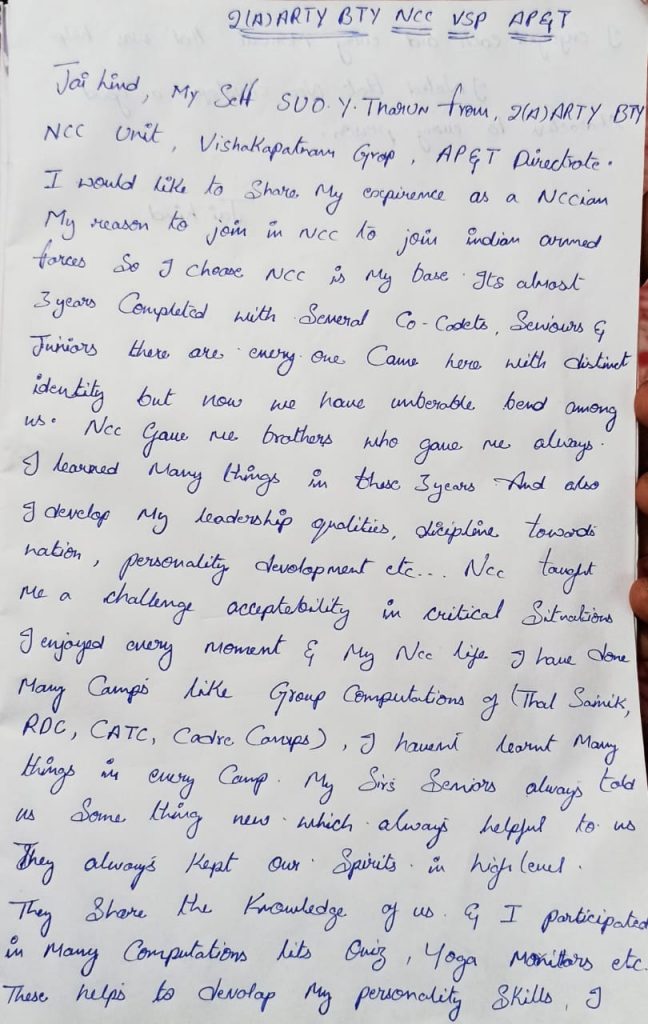 2(A)ARTY BTY NCC VSP AP&T
Jai hind, My Self SUO.Y.Tharun from, 2(A)ARTY BTY
NCC Unit, Vishakapatnam Grop, AP&T Directrate.
I would like to Share My expirence as a Nccian
My reason to join in NCC to join indian armed
forces So I choose NCC is My base. Its almost
3 years Completed with Several Co-Cadets, Seniours &
Juniors there are every one Came here with distinct
identity but now we have unberable bend among
us. Ncc Gave me brothers who gave me always.
I learned Many things in these 3 years And also
I develop My leadership qualities, dicipline towards
nation, personality devolopment etc... Ncc taught
Me a challenge acceptebility in critical Situations
I enjoyed every Moment & My Ncc life I have done
Many Camps like Group Computations of (Thal Sainik,
RDC, CATC, Cadre Camps), I havent learnt Many
things in every Camp. My Sirs Seniors always told
us Some thing new which always helpful to us
They always Kept our Spirits in high level.
They Share the Knowledge of us & I participated
in Many Computations Quiz, Yoga Monitors etc.
These helps to devolap My personality Skills, I